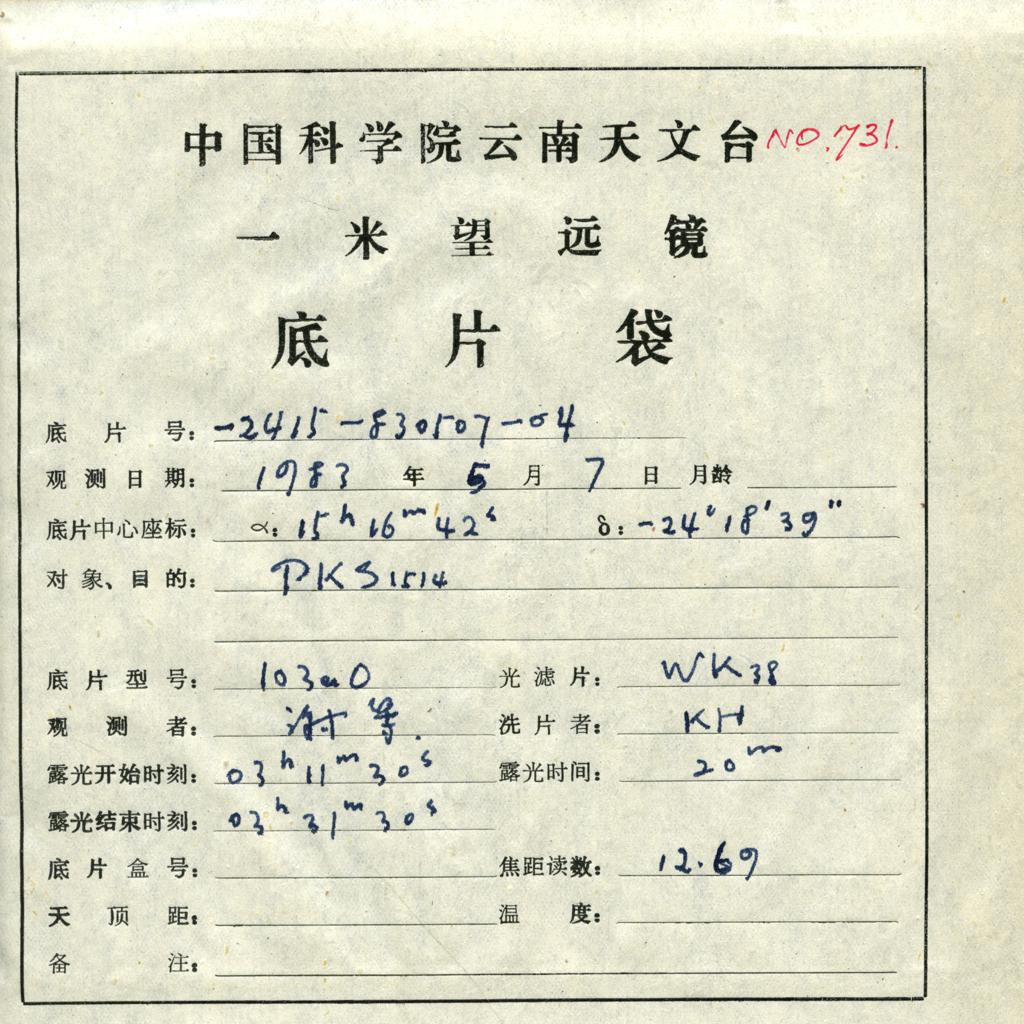 中国科学院云南天文台 NO.731.
一米望远镜
底片袋
底片号: -2415-830507-04
观测日期: 1983 年 5 月 7 日 月龄
底片中心座标: α: 15h 16m 42s δ: -24° 18′ 39″
对象、目的: PKS 1514
底片型号: 103aO 光滤片: WK38
观测者: 谢等. 洗片者: KH
露光开始时刻: 03h 11m 30s 露光时间: 20m
露光结束时刻: 03h 31m 30s
底片盒号: 焦距读数: 12.69
天顶距: 温度:
备注: